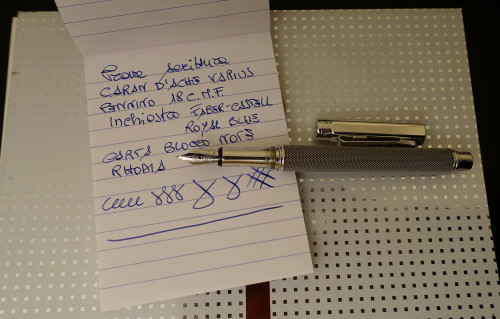 Prova scrittura
CARAN D'ACHE VARIUS
PENNINO 18 C. M.F.
Inchiostro FABER-CASTELL
ROYAL BLUE
CARTA BLOCCO NOTE
RHODIA